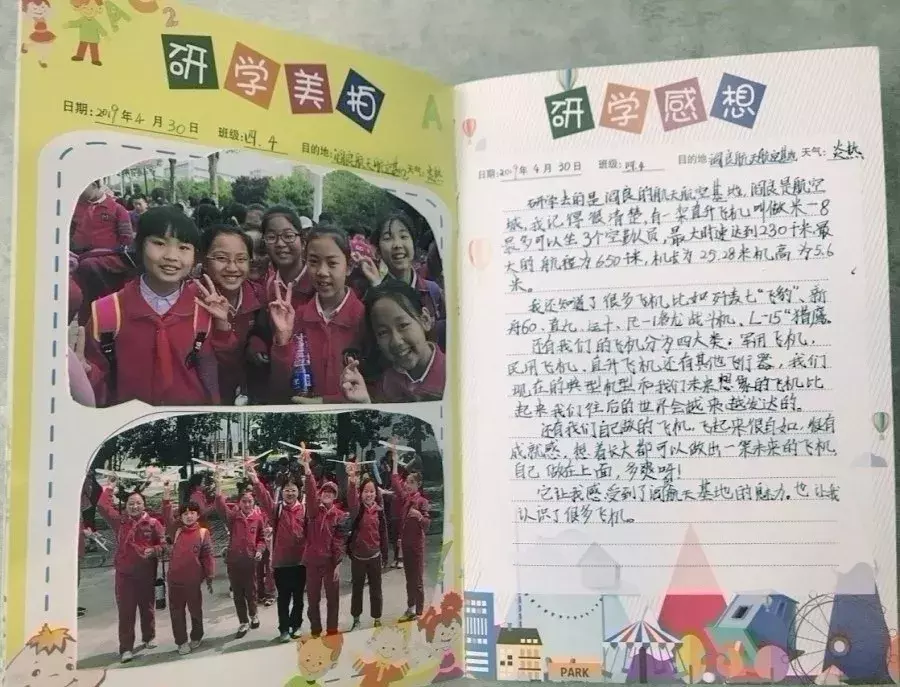 研学美拍
日期:2019年4月30日 班级:四.4
目的地:阎良航天航空基地 天气:炎热
研学感想
日期:2019年4月30日 班级:四.4 目的地:阎良航天航空基地 天气:炎热
研学去的是阎良的航天航空基地,阎良是航空
城,我记得很清楚,有一架直升飞机叫做米-8
最多可以坐3个空勤人员,最大时速达到230千米,最
大的航程为650千米,机长为25.28米机高为5.6
米。
我还知道了很多飞机比如歼轰七"飞豹"、新
舟60、直九、运十、
还有我们的飞机分为四大类:军用飞机,
民用飞机,直升飞机还有其他飞行器,我们
现在的典型机型和我们未来想象的飞机比
起来我们往后的世界会越来越发达的。
还有我们自己做的飞机,飞起来很自如,很有
成就感,想着长大都可以做出一架未来的飞机,
自己做在上面,多爽呀!
它让我感受到了阎航天基地的魅力,也让我
认识了很多飞机。
PARK